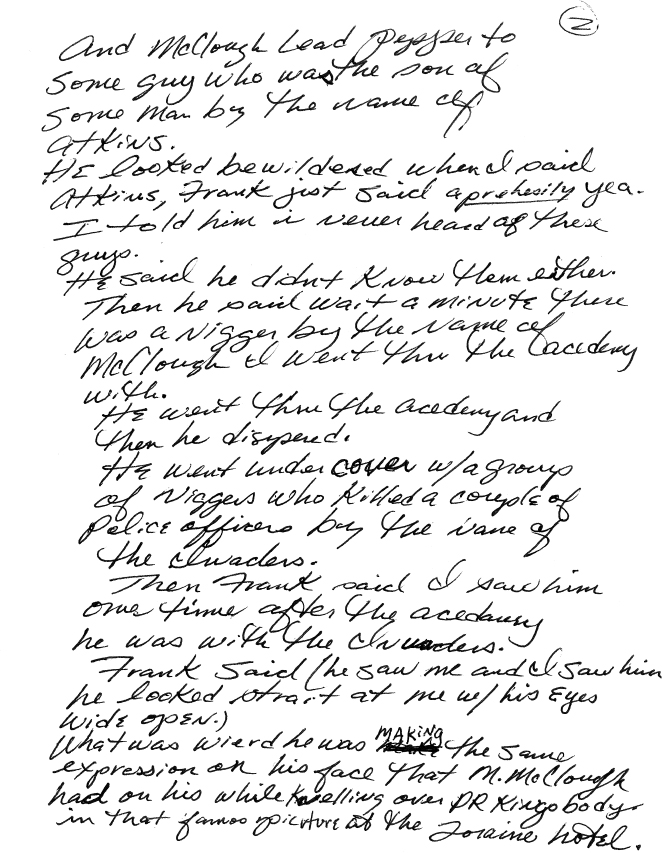 2
And McClough Lead Pepper to
some guy who was the son of
some man by the name of
Atkins.
HE looked bewildered when I said
Atkins, Frank just said a prehesily yea.
I told him i never heard of these
guys.
HE said he didnt Know them either.
Then he said wait a minute there
was a Nigger by the Name of
McClough I went thru the acedemy
with.
HE went thru the acedemy and
then he disypered.
HE went under cover w/a group
of Niggers who Killed a couple of
Police officers by the name of
the Invaders.
Then Frank said I saw him
one time after the acedamy
he was with the Invaders.
Frank Said (he saw me and I saw him
he looked strait at me w/ his Eyes
WidE open.)
What was wierd he was MAKiNG the same
expression on his face that M. McClough
had on his while Knelling over DR Kings body
in that famos picture at the Loraine hotel.